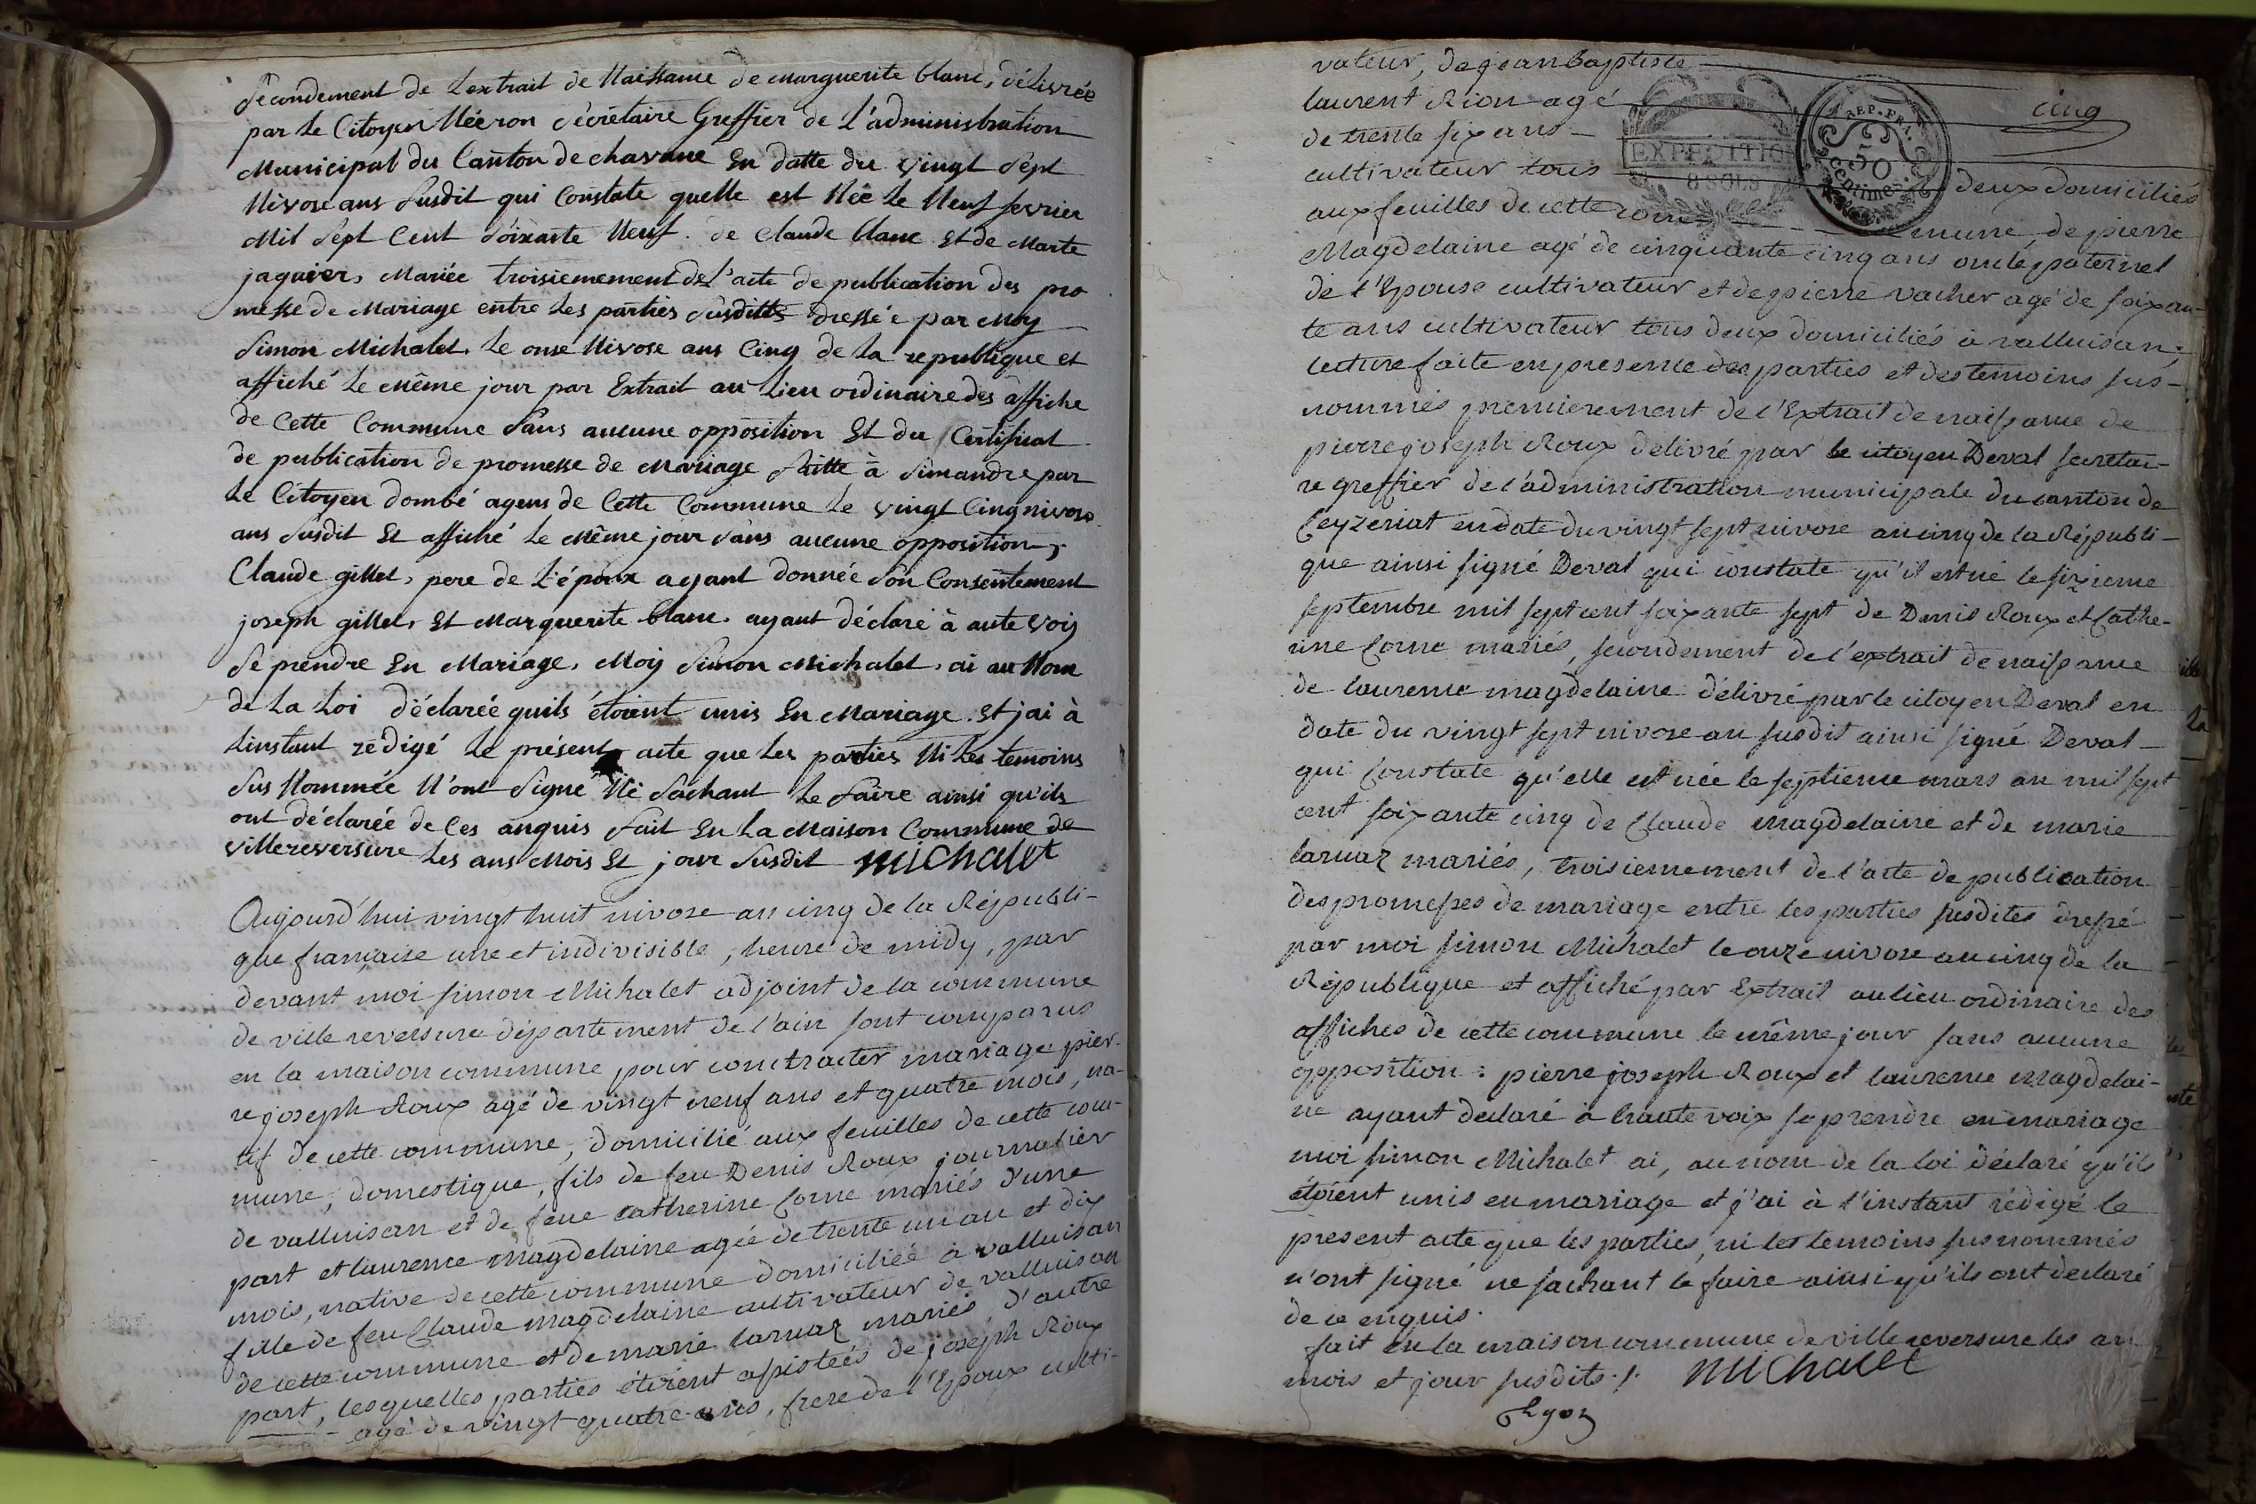 Secondement de Lextrait de Naissance de marguerite blanc, délivrée
par Le Citoyen Néeron Sécrétaire Greffier de L'administration
Municipal du Canton de chavane En datte du vingt Sept
Nivose ans Susdit qui Constate quelle est Née Le Neuf fevrier
Mil Sept Cent Soixante Neuf. de Claude blanc Et de Marte
jaquier, Mariée troisiemement de L'acte de publication des pro
messe de Mariage entre Les parties Susdittes dressée par Moy
Simon Michalet. Le onse Nivose ans Cinq de La republique et
affiché Le même jour par Extrait au Lieu ordinaire des affiche
de Cette Commune Sans aucune opposition Et du Certificat
de publication de promesse de Mariage faitte à Simandre par
Le Citoyen dombé agens de Cette Commune Le vingt Cinq nivose
ans Susdit Et affiché Le même jour Sans aucune opposition,
Claude gillet, pere de L'époux ayant donnée Son Consentement
joseph gillet, Et Marguerite blanc. ayant déclaré à aute voij
Se prendre En Mariage, Moij Simon Michalet, ai au Nom
de La Loi déclarée quils étoient unis En Mariage. Et jai à
Linstant rédigé Le présent acte que Les parties Ni Les temoins
Sus Nommée N'ont Signé Né Sachant Le Faire ainsi qu'ils
ont déclarée de Ces anquis fait En La Maison Commune de
villereversure Les ans Mois Et jour Susdit michalet
Aujourd'hui vingt huit nivose an cinq de la Républi-
que française une et indivisible, heure de midy, par
devant moi simon Michalet adjoint de la commune
de ville reversure département de l'ain sont comparus
en la maison commune pour contracter mariage pier-
re joseph Roux agé de vingt neuf ans et quatre mois, na-
tif de cette commune, domicilié aux feuilles de cette com-
mune, domestique, fils de feu Denis Roux journalier
de valluisan et de feue catherine Corne mariés d'une
part et laurence magdelaine agée de trente un an et dix
mois, native de cette commune domiciliée à valluisan
fille de feu Claude magdelaine cultivateur de valluisan
de cette commune et de marie laruaz mariés d'autre
part, lesquelles parties étoient assistées de joseph Roux
agé de vingt quatre ans, frere de l'Epoux culti-
vateur, de jean baptiste
laurent Rion agé
de trente six ans
cultivateur tous deux domiciliés
aux feuilles de cette com mune, de pierre
Magdelaine agé de cinquante cinq ans oncle paternel
de l'Epouse cultivateur et de pierre vacher agé de soixan-
te ans cultivateur tous deux domiciliés à valluisan;
lecture faite en presence des parties et des temoins sus-
nommés premierement de l'Extrait de naissance de
pierre joseph Roux delivré par le citoyen Deval secretai-
re greffier de l'administration municipale du canton de
Ceyzeriat en date du vingt sept nivose an cinq de la Républi-
que ainsi signé Deval qui constate qu'il est né le sixieme
septembre mil sept cent soixante sept de Denis Roux et Cathe-
rine Corne mariés, secondement de l'extrait de naissance
de laurence magdelaine délivré par le citoyen Deval en
date du vingt sept nivose an susdit ainsi signé Deval
qui Constate qu'elle est née le septieme mars an mil sept
cent soixante cinq de Claude Magdelaine et de marie
laruaz mariés, troisiemement de l'acte de publication
des promesses de mariage entre les parties susdites dressé
par moi simon Michalet le onze nivose an cinq de la
République et affiché par Extrait au lieu ordinaire des
affiches de cette commune le même jour sans aucune
opposition : pierre joseph Roux et laurence Magdelai-
ne ayant declaré à haute voix se prendre en mariage
moi simon Michalet ai, au nom de la loi déclaré qu'ils
étoient unis en mariage et j'ai à l'instant rédigé le
present acte que les parties, ni les temoins susnommés
n'ont signé ne sachant le faire ainsi qu'ils ont declaré
de ce enquis.
fait en la maison commune de ville reversure les an
mois et jour susdits./. michalet
cinq
EXPEDITION
8 SOLS
REP. FRA.
50
Centimes